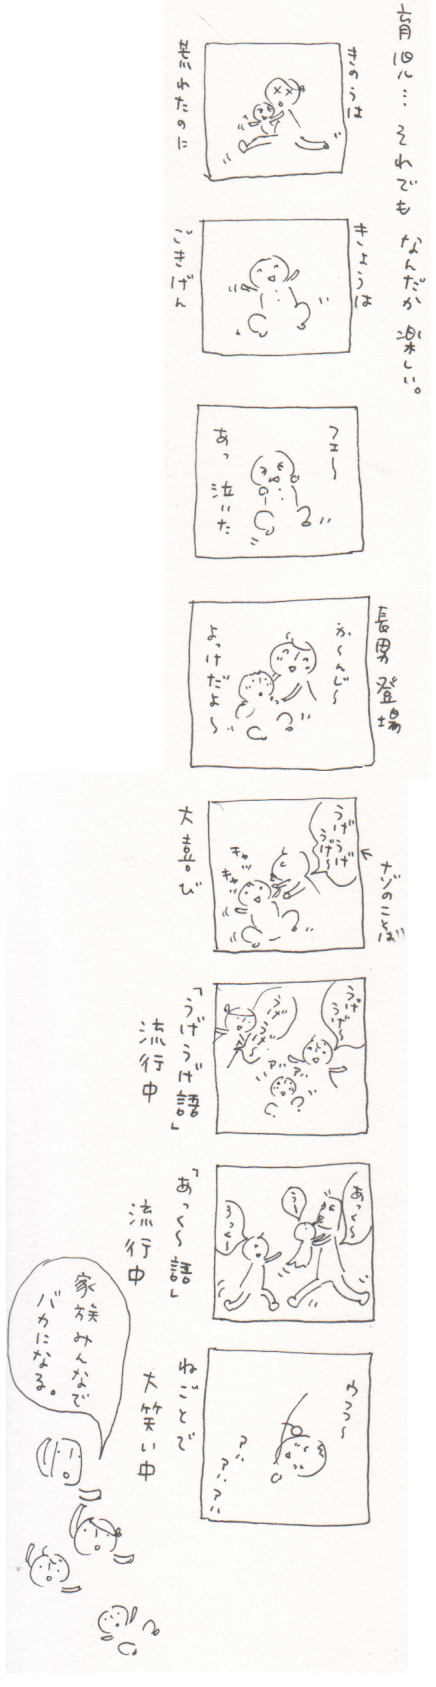 育児…それでもなんだか楽しい。
きのうは
荒れたのに
きょうは
ごきげん
フェ〜
あっ 泣いた
長男登場
か〜んじ〜
よっけだよ〜
ナゾのことば
うげうげ
うげ〜
キャッ
キャッ
大喜び
うげ
うげ〜
アハ
アハ
「うげうげ語」
流行中
あっく〜
う〜
うっく〜
「あっく〜語」
流行中
ウフフ〜
アハ
アハ
アハ
ねごとで
大笑い中
家族みんなで
バカになる。